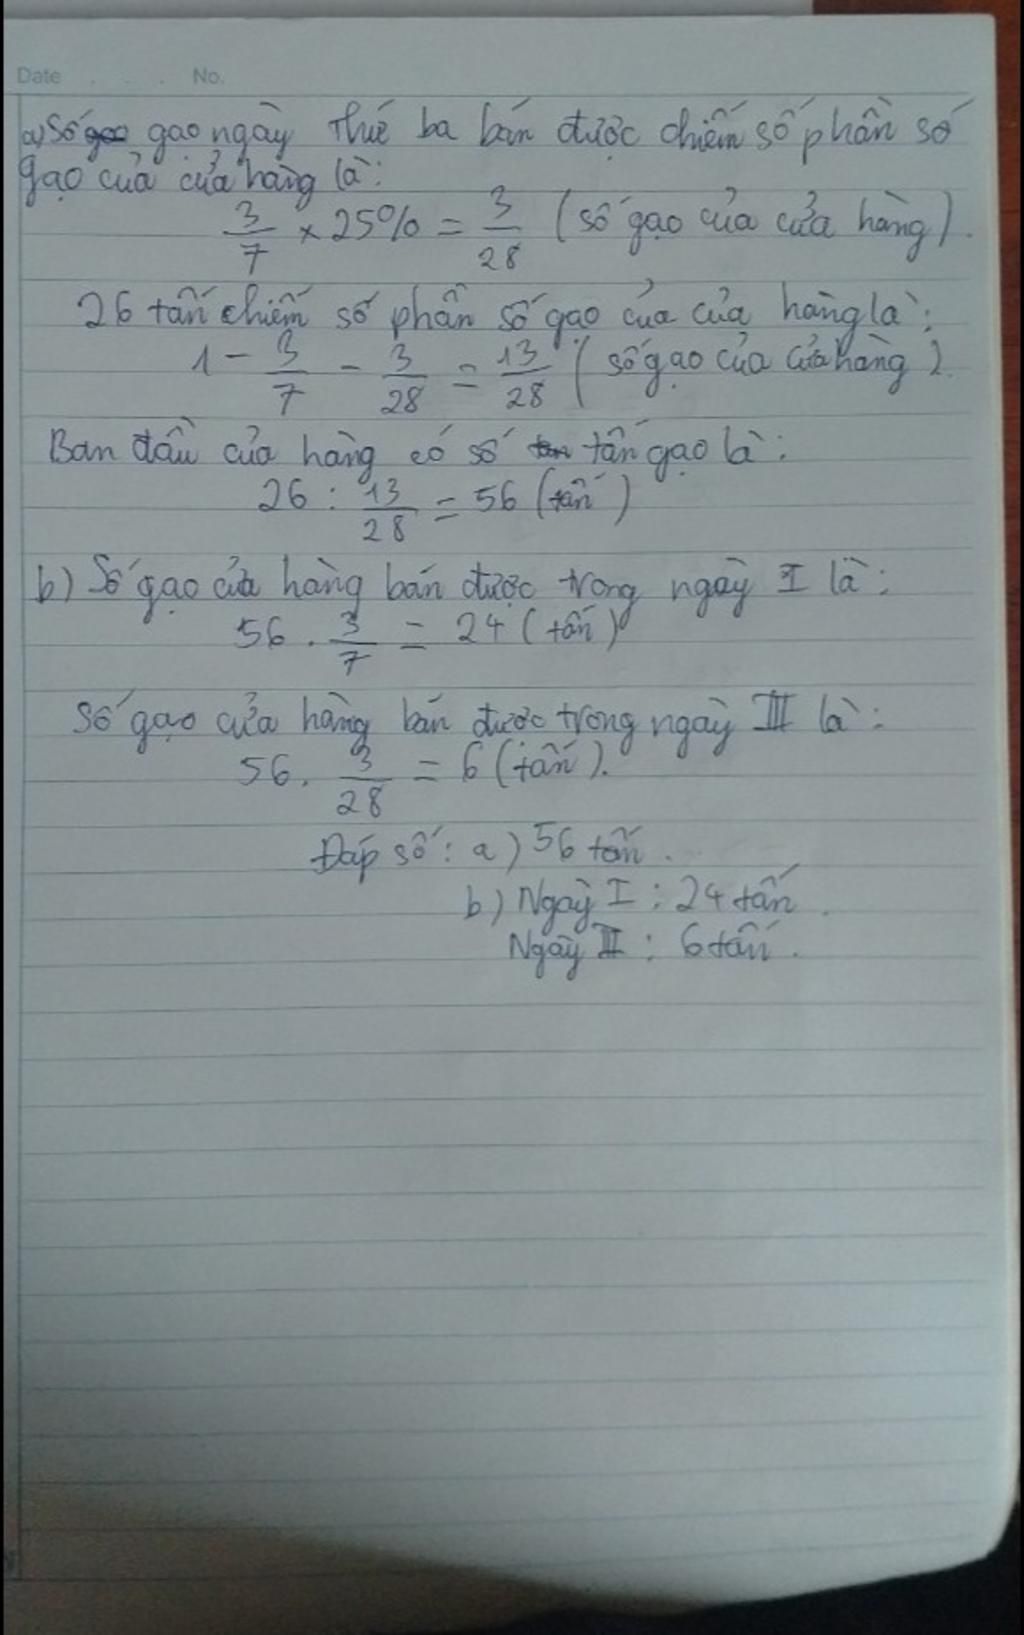 Date . . . No.
a) Số gạo gạo ngày thứ ba bán được chiếm số phần số
gạo của cửa hàng là:
3/7 × 25% = 3/28 (số gạo của cửa hàng).
26 tấn chiếm số phần số gạo của cửa hàng là:
1 - 3/7 - 3/28 = 13/28 (số gạo của cửa hàng).
Ban đầu cửa hàng có số tấn gạo là:
26 : 13/28 = 56 (tấn)
b) Số gạo cửa hàng bán được trong ngày I là:
56 . 3/7 = 24 (tấn)
Số gạo cửa hàng bán được trong ngày III là:
56 . 3/28 = 6 (tấn).
Đáp số: a) 56 tấn.
b) Ngày I : 24 tấn.
Ngày III : 6 tấn.